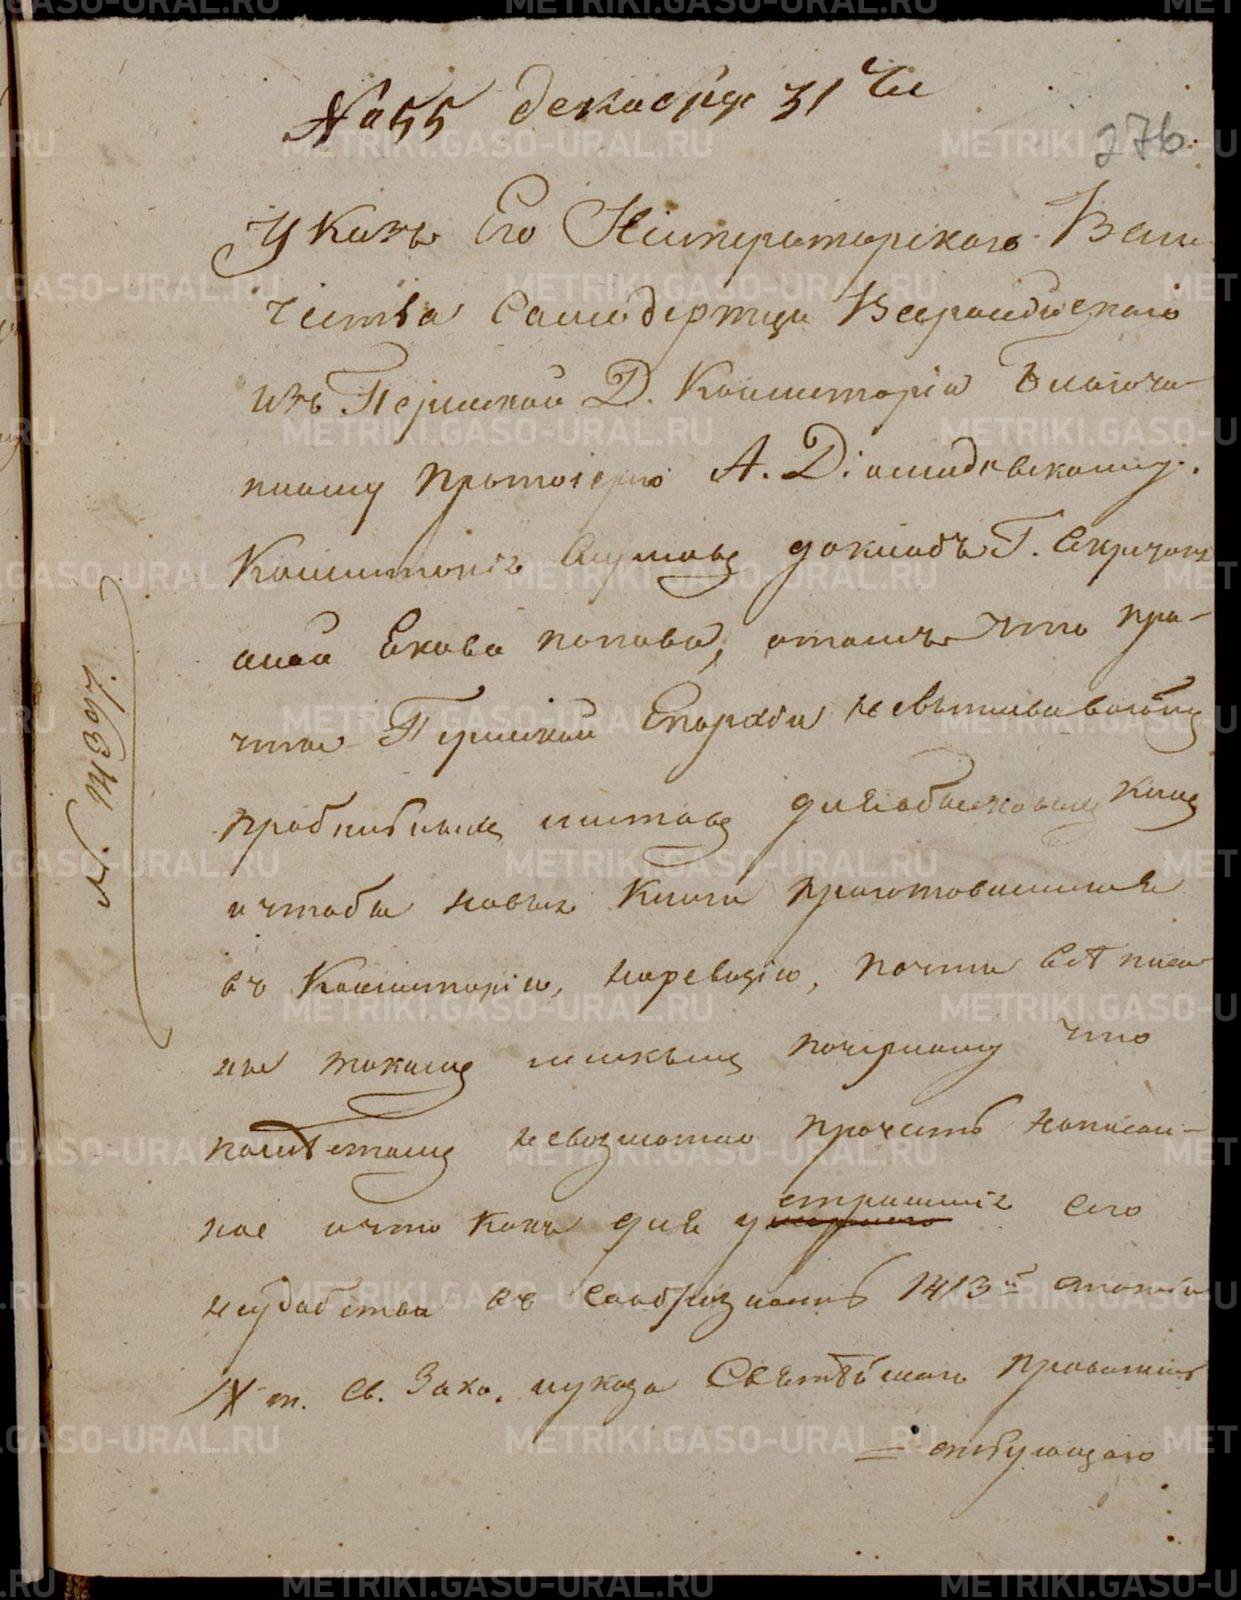 № 55 декабря 31 че
276.
Указъ Его Императорскаго Вели
чества Самодержца Всероссийскаго
изъ Пермской Д. Консисторіи Благочи-
нному Протоіерею А. Діомидовскому.
Консисторія Слушавъ докладъ Г. Секретаря
Попова, что при-
чты Пермской Епархіи невыписываютъ
пробѣльныхъ листовъ для обыскныхъ книгъ
и чтобы новыя Книги приготовляемыя
въ Консисторіи, почти всѣ писа
ны такимъ мелкимъ почеркомъ что
мѣстами невозможно прочесть написан-
ное и что какъ для устраненія сего
неудобства въ сообразность 1413й статьи
IX т. Св. Зако. и указа Святѣйшаго Правитель
= ствующаго
№. 14397.
METRIKI.GASO-URAL.RU